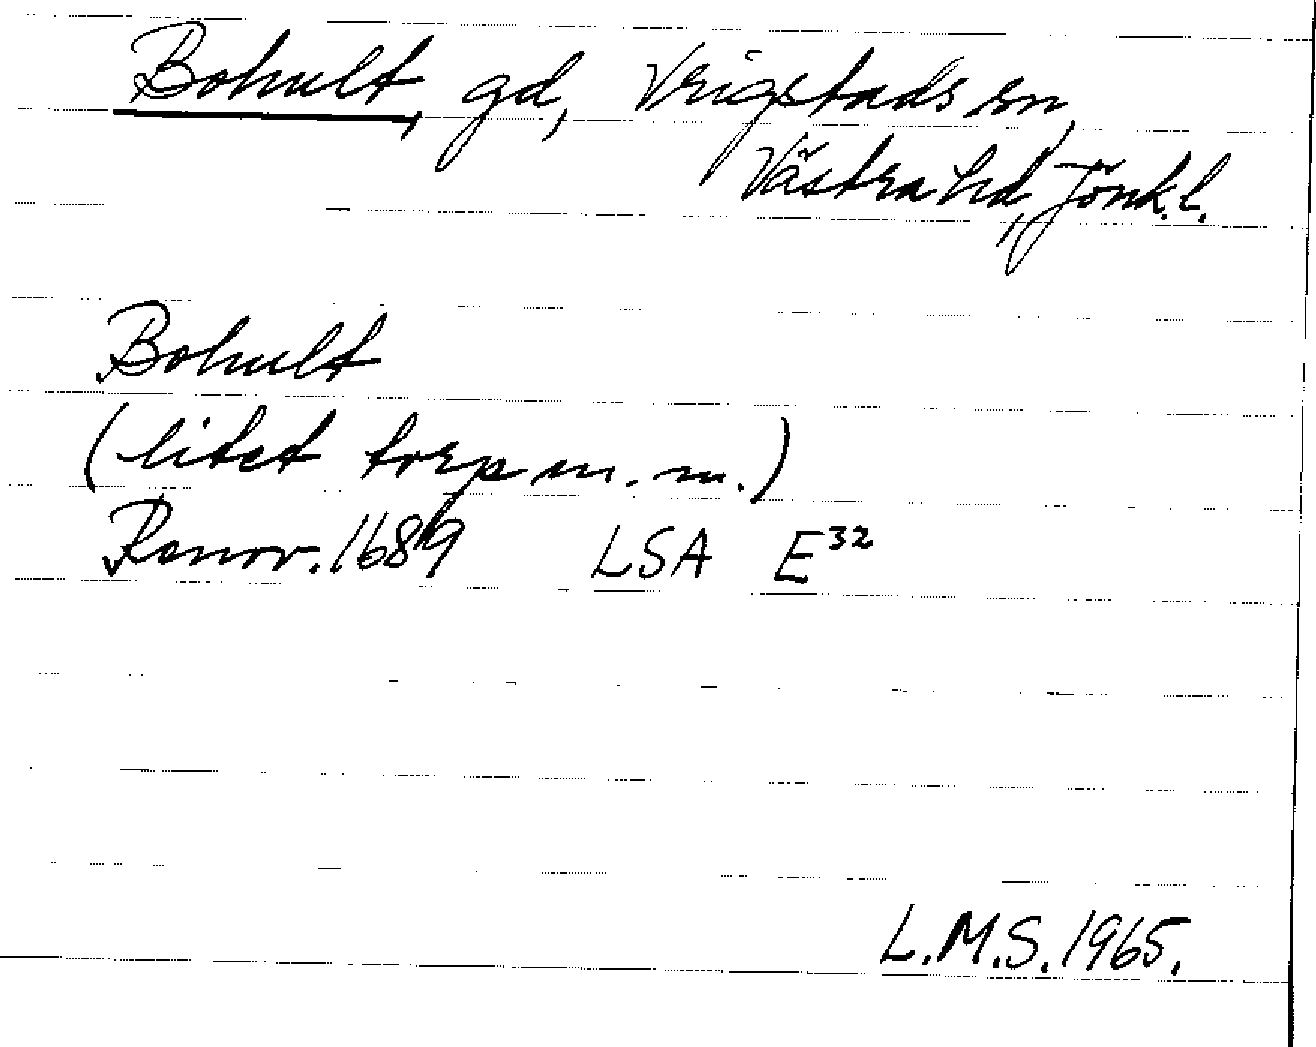 Bohult, gd, Vrigstads sn,
Västra hd, Jönk.l.
Bohult
(litet torp m.m.)
Renov. 1689 LSA E³²
L.M.S. 1965.